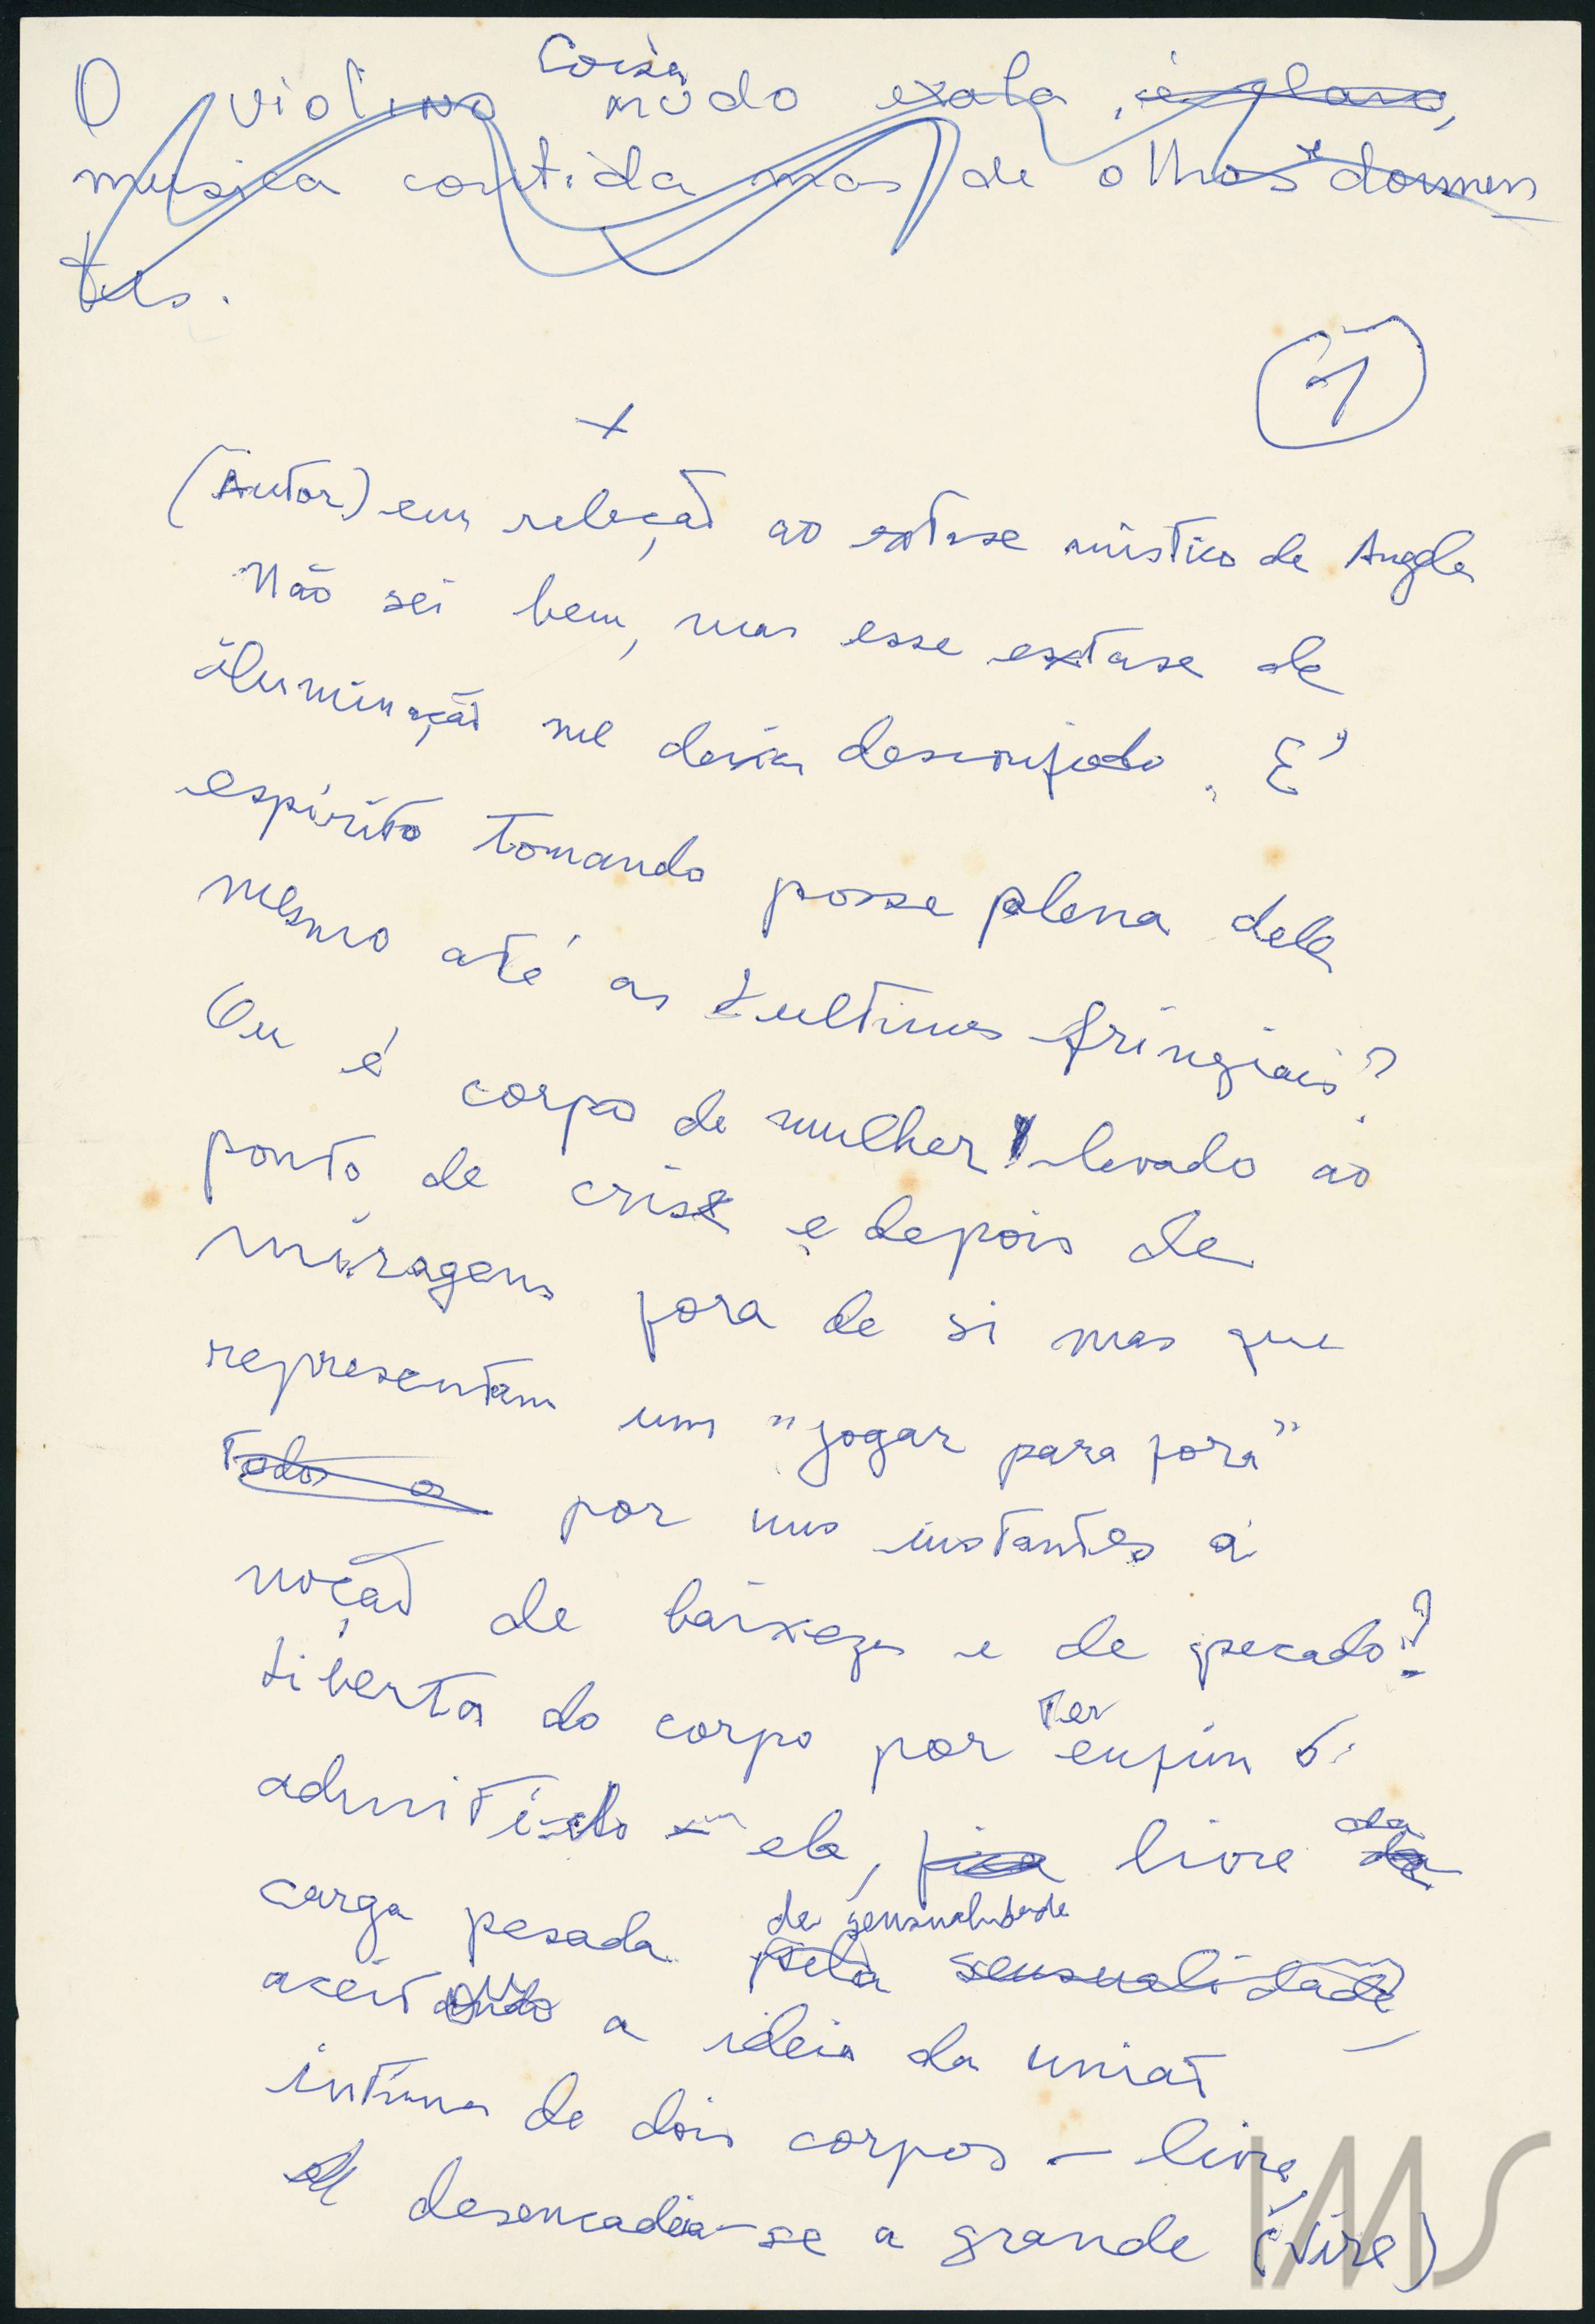 Coisa
O violino mudo exala, é claro,
musica contida mas de olhos dormen
tes.
1
X
(Autor) em relação ao extase mistico de Angela
Não sei bem, mas esse extase de
iluminação me deixa desconfiado. É
espirito tomando posse plena dele
mesmo até as ultimas fringiais?
Ou é corpo de mulher levado ao
ponto de crise e depois de
miragens fora de si mas que
representam um "jogar para fora"
todo o por uns instantes a
noção de baixeza e de pecado?
Liberta do corpo por ter enfim o
admitido – ela, fica livre da
carga pesada da sensualidade
pela sensualidade
aceitou a ideia da uniaõ
intima de dois corpos – livre,
desencadeia-se a grande (vire)
IMS